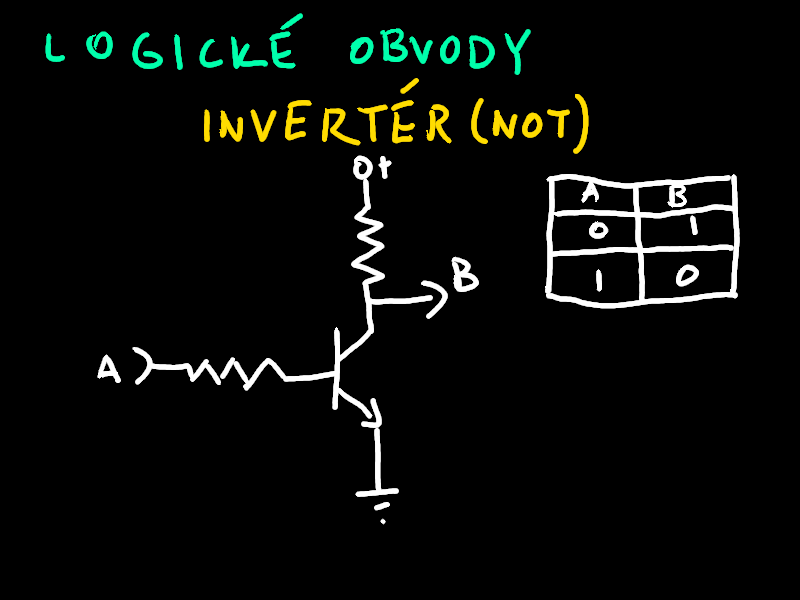 LOGICKÉ OBVODY
INVERTÉR (NOT)
0+
A B
0 1
1 0
B
A